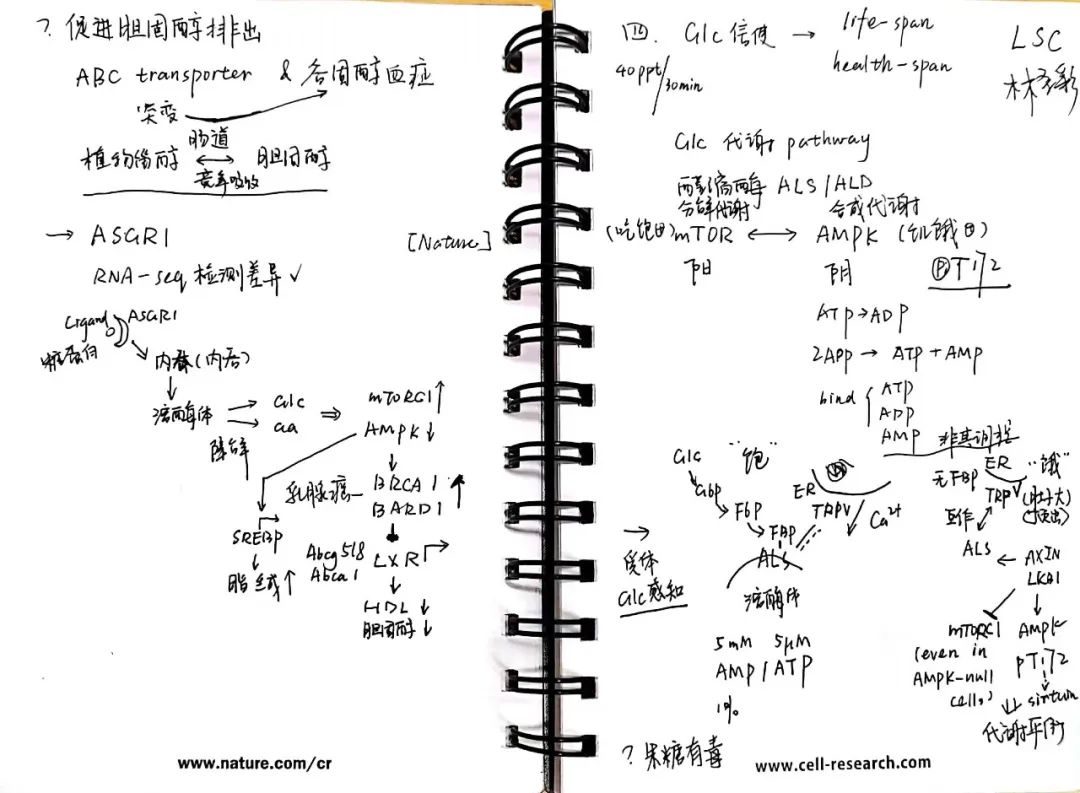 ? 促进胆固醇排出
ABC transporter & 谷固醇血症
突变
肠道
植物甾醇 ↔ 胆固醇
竞争吸收
→ ASGR1 [Nature]
RNA-seq 检测差异 ✓
Ligand ASGR1
糖蛋白
内吞(内吞)
溶酶体 → Glc ⇒ mTORC1 ↑
→ aa AMPK ↓
降解
乳腺癌 — BRCA1 ↑
BARD1
SREBP
Abcg5/8 LXR
Abca1
脂合成 ↑
HDL ↓
胆固醇 ↓
www.nature.com/cr
四. Glc 信使 → life-span
health-span
40ppt/30min
LSC
林圣彩
Glc 代谢 pathway
醛缩酶 ALS/ALD
分解代谢 合成代谢
(吃饱田) mTOR ↔ AMPK (饥饿田)
阳 阴 Ⓟ T172
ATP→ADP
2ADP → ATP + AMP
bind { ATP
ADP
AMP
"饱"
Glc
G6P
F6P
FBP
ALS
溶酶体
ER
TRPV
Ca²⁺
"饿"
无FBP ER
TRPV
互作
ALS ← AXIN
LKB1
→ 受体
Glc 感知
mTORC1 AMPK
(even in pT172
AMPK-null
cells) sirtuin
代谢平衡
5mM 5μM
AMP / ATP
1%
? 果糖有毒
www.cell-research.com